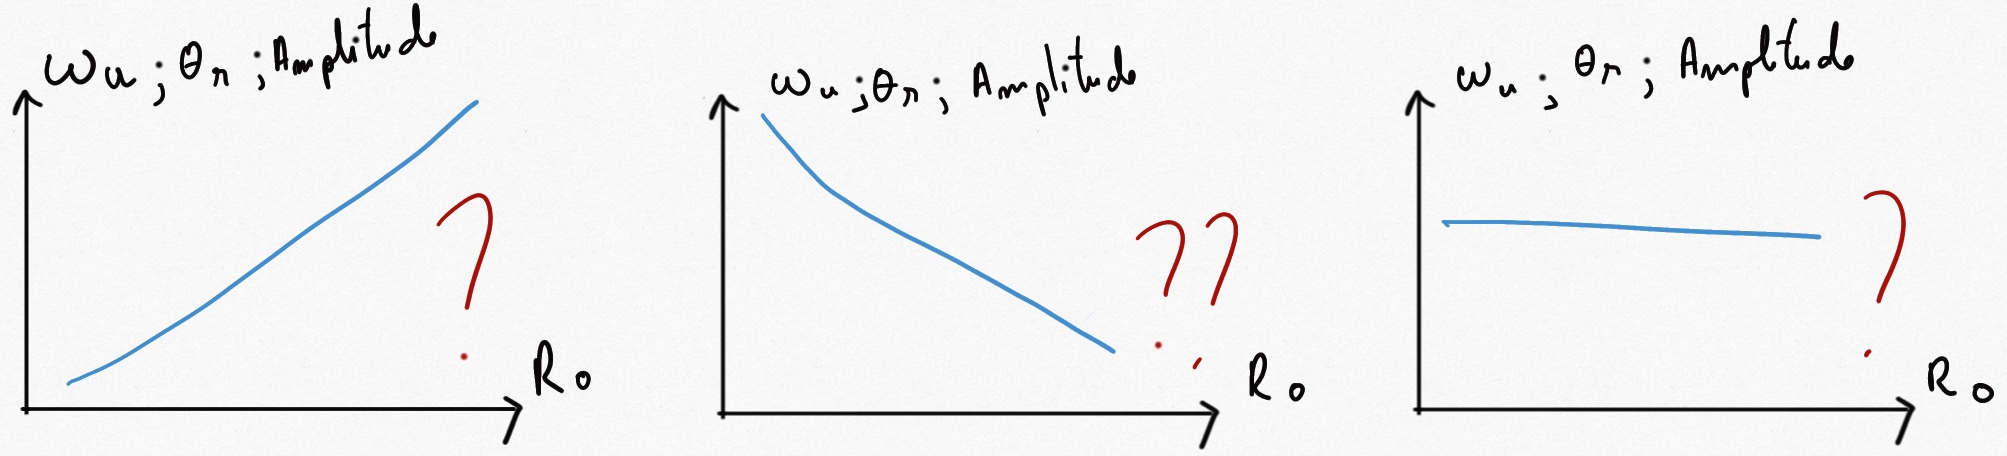 ωu ; θn ; Amplitude
?
R0
ωu ; θn ; Amplitude
??
R0
ωu ; θn ; Amplitude
?
R0